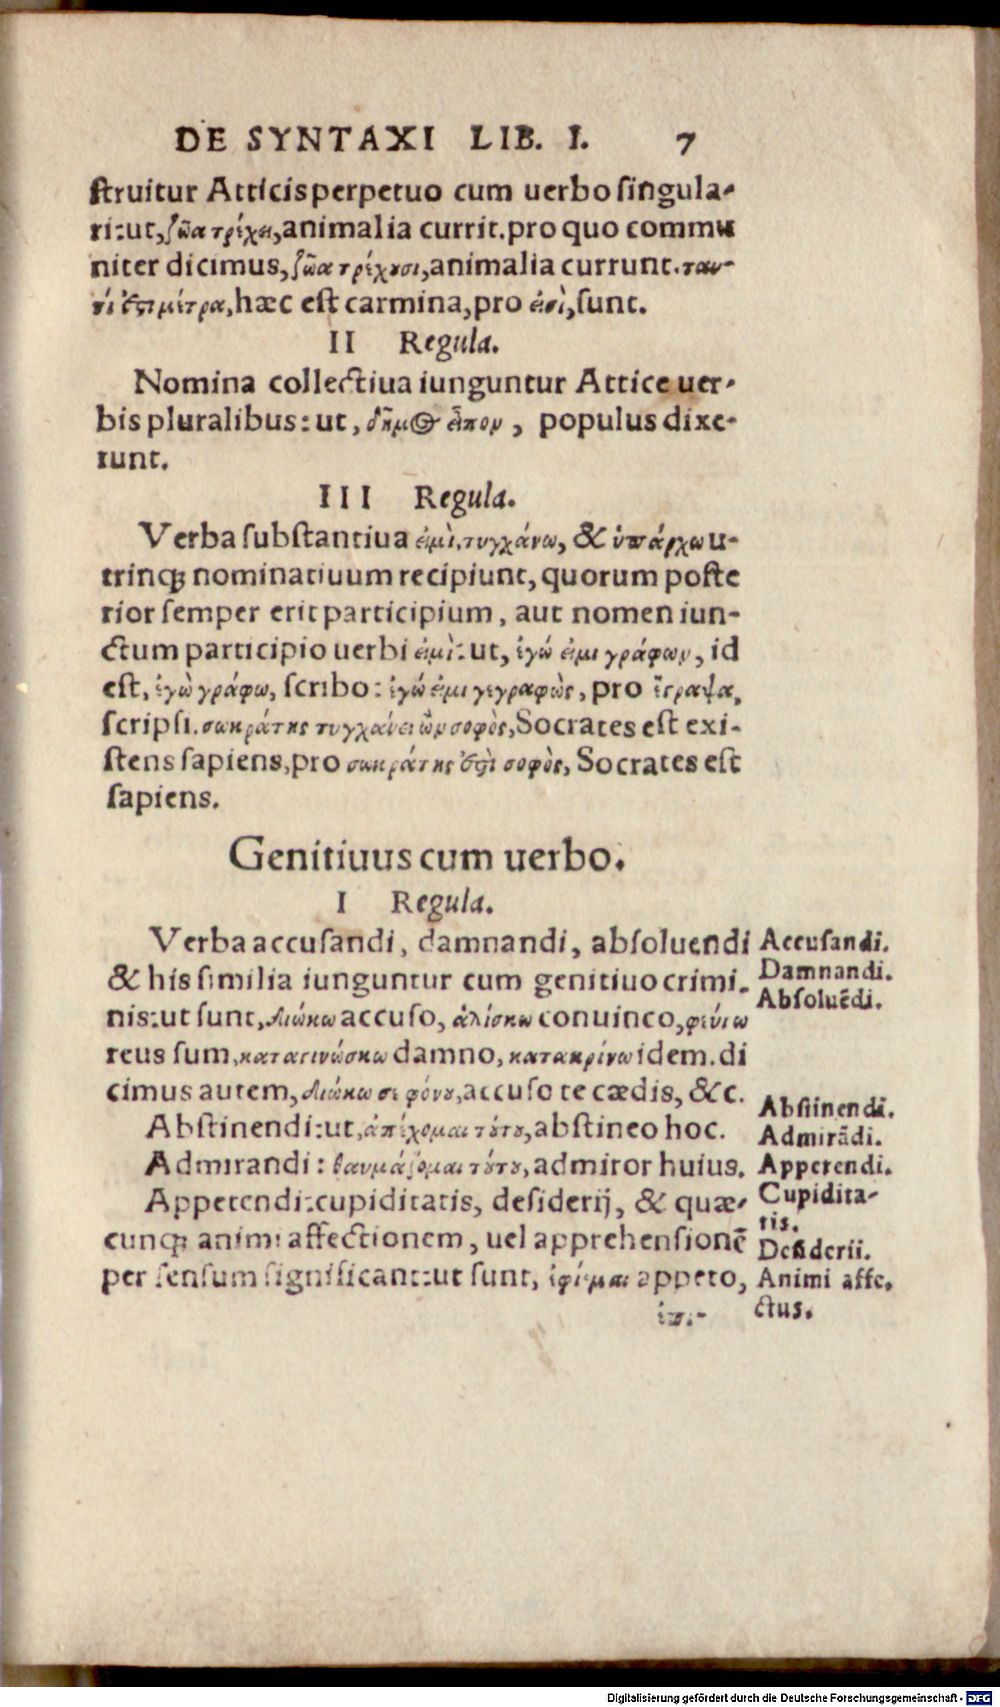 DE SYNTAXI LIB. I. 7
ſtruitur Atticis perpetuo cum uerbo ſingula-
ri: ut, ζῶα τρέχει, animalia currit. pro quo commu
niter dicimus, ζῶα τρέχουσι, animalia currunt. ταυ-
τί ἐστι μέτρα, hæc eſt carmina, pro εἰσὶ, ſunt.
II Regula.
Nomina collectiua iunguntur Attice uer-
bis pluralibus: ut, δῆμος εἶπον, populus dixe-
runt.
III Regula.
Verba ſubſtantiua εἰμὶ, τυγχάνω, & ὑπάρχω u-
trinq; nominatiuum recipiunt, quorum poſte
rior ſemper erit participium, aut nomen iun-
ctum participio uerbi εἰμὶ: ut, ἐγώ εἰμι γράφων, id
eſt, ἐγὼ γράφω, ſcribo: ἐγώ εἰμι γεγραφὼς, pro ἔγραψα,
ſcripſi. σωκράτης τυγχάνει ὢν σοφὸς, Socrates eſt exi-
ſtens ſapiens, pro σωκράτης ἐστὶ σοφὸς, Socrates eſt
ſapiens.
Genitiuus cum uerbo.
I Regula.
Verba accuſandi, damnandi, abſoluendi
& his ſimilia iunguntur cum genitiuo crimi-
nis: ut ſunt, διώκω accuſo, ἁλίσκω conuinco, φεύγω
reus ſum, καταγινώσκω damno, κατακρίνω idem. di
cimus autem, διώκω σε φόνου, accuſo te cædis, &c.
Abſtinendi: ut, ἀπέχομαι τούτου, abſtineo hoc.
Admirandi: θαυμάζομαι τούτου, admiror huius.
Appetendi: cupiditatis, deſiderij, & quæ-
cunq; animi affectionem, uel apprehenſionē
per ſenſum ſignificant: ut ſunt, ἐφίεμαι appeto,
ἐπι-
Accuſandi.
Damnandi.
Abſoluēdi.
Abſtinendi.
Admirādi.
Appetendi.
Cupidita-
tis.
Deſiderii.
Animi affe.
ctus.
Digitalisierung gefördert durch die Deutsche Forschungsgemeinschaft - DFG